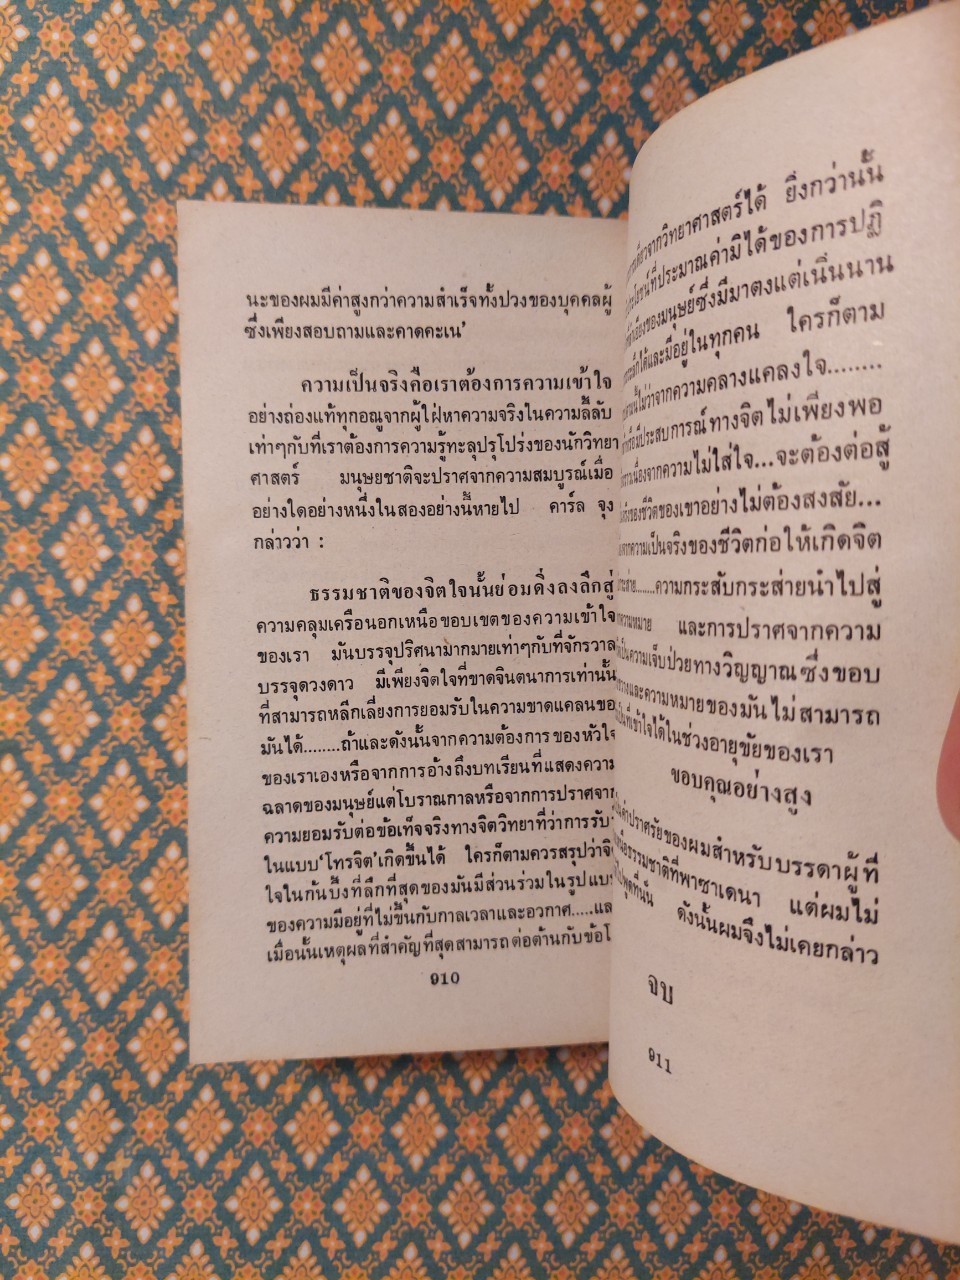 นะของผมมีค่าสูงกว่าความสำเร็จทั้งปวงของบุคคลผู้
ซึ่งเพียงสอบถามและคาดคะเน'
ความเป็นจริงคือเราต้องการความเข้าใจ
อย่างถ่องแท้ทุกอณูจากผู้ใฝ่หาความจริงในความลี้ลับ
เท่าๆกับที่เราต้องการความรู้ทะลุปรุโปร่งของนักวิทยา
ศาสตร์ มนุษยชาติจะปราศจากความสมบูรณ์เมื่อ
อย่างใดอย่างหนึ่งในสองอย่างนี้หายไป คาร์ล จุง
กล่าวว่า :
ธรรมชาติของจิตใจนั้นย่อมดิ่งลงลึกสู่
ความคลุมเครือนอกเหนือขอบเขตของความเข้าใจ
ของเรา มันบรรจุปริศนามากมายเท่าๆกับที่จักรวาล
บรรจุดวงดาว มีเพียงจิตใจที่ขาดจินตนาการเท่านั้น
ที่สามารถหลีกเลี่ยงการยอมรับในความขาดแคลนขอ
มันได้........ถ้าและดังนั้นจากความต้องการของหัวใจ
ของเราเองหรือจากการอ้างถึงบทเรียนที่แสดงความ
ฉลาดของมนุษย์แต่โบราณกาลหรือจากการปราศจาก
ความยอมรับต่อข้อเท็จจริงทางจิตวิทยาที่ว่าการรับ
ในแบบ'โทรจิต'เกิดขึ้นได้ ใครก็ตามควรสรุปว่าจิต
ใจในก้นบึ้งที่ลึกที่สุดของมันมีส่วนร่วมในรูปแบบ
ของความมีอยู่ที่ไม่ขึ้นกับกาลเวลาและอวกาศ.....แล
เมื่อนั้นเหตุผลที่สำคัญที่สุดสามารถต่อต้านกับข้อโ
910
จากวิทยาศาสตร์ได้ ยิ่งกว่านั้น
ที่ประมาณค่ามิได้ของการปฏิ
ของมนุษย์ซึ่งมีมาตงแต่เนิ่นนาน
ได้และมีอยู่ในทุกคน ใครก็ตาม
ไม่ว่าจากความคลางแคลงใจ........
มีประสบการณ์ทางจิตไม่เพียงพอ
เนื่องจากความไม่ใส่ใจ...จะต้องต่อสู้
ของชีวิตของเขาอย่างไม่ต้องสงสัย...
ความเป็นจริงของชีวิตก่อให้เกิดจิต
........ความกระสับกระส่ายนำไปสู่
ความหมาย และการปราศจากความ
เป็นความเจ็บป่วยทางวิญญาณซึ่งขอบ
และความหมายของมันไม่สามารถ
ที่เข้าใจได้ในช่วงอายุขัยของเรา
ขอบคุณอย่างสูง
คำปราศรัยของผมสำหรับบรรดาผู้ที่
ธรรมชาติที่พาซาเดนา แต่ผมไม่
พูดที่นั่น ดังนั้นผมจึงไม่เคยกล่าว
จบ
911